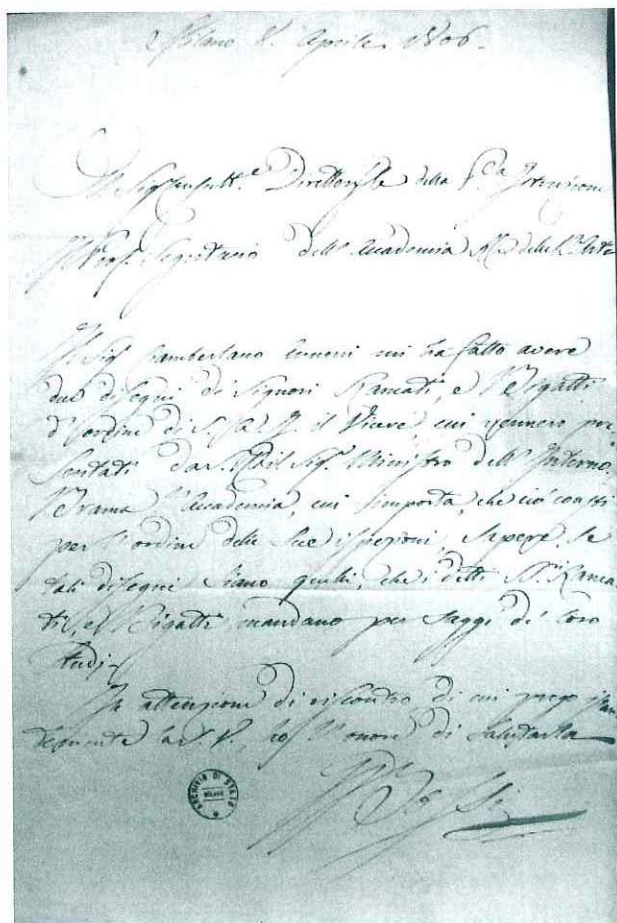 Milano 8. Aprile 1806.
Al Sig. Consult.e Direttor Gle della P.ca Istruzione
Il Prof. Segretario dell'Accademia Rle delle B. Arti
Il Sig. Ciamberlano mi ha fatto avere
due disegni di Signori Ramati, e Pigatti
d'ordine di S. A. I. il Vicerè, cui vennero pre
sentati da S. E. il Sig. Ministro dell'Interno.
Brama l'Accademia, cui importa, che ciò consti
per l'ordine delle sue ispezioni, sapere, se
tali disegni siano quelli, che i detti SS.
e Pigatti mandano per saggi de' loro
studj.
In attenzione di riscontro di cui prego istan
temente la S. V., ho l'onore di salutarla
ARCHIVIO DI STATO
MILANO